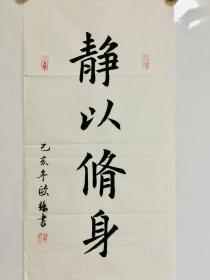 静以脩身
乙亥年欧
书